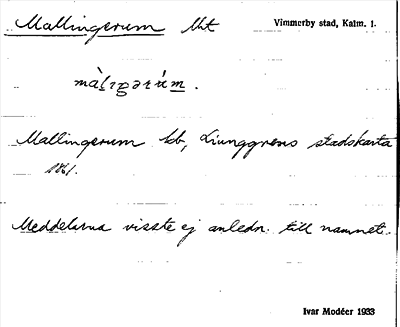 Mallingerum Mt Vimmerby stad, Kalm. l.
Mallingerum bb, Ljunggrens stadskarta
1861.
Meddelarna visste ej anledn. till namnet.
Ivar Modéer 1933